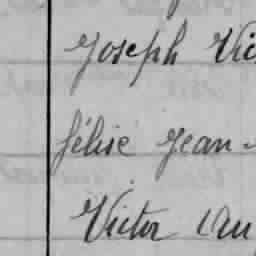 Joseph Vic
félisé Jean-
Victor Au